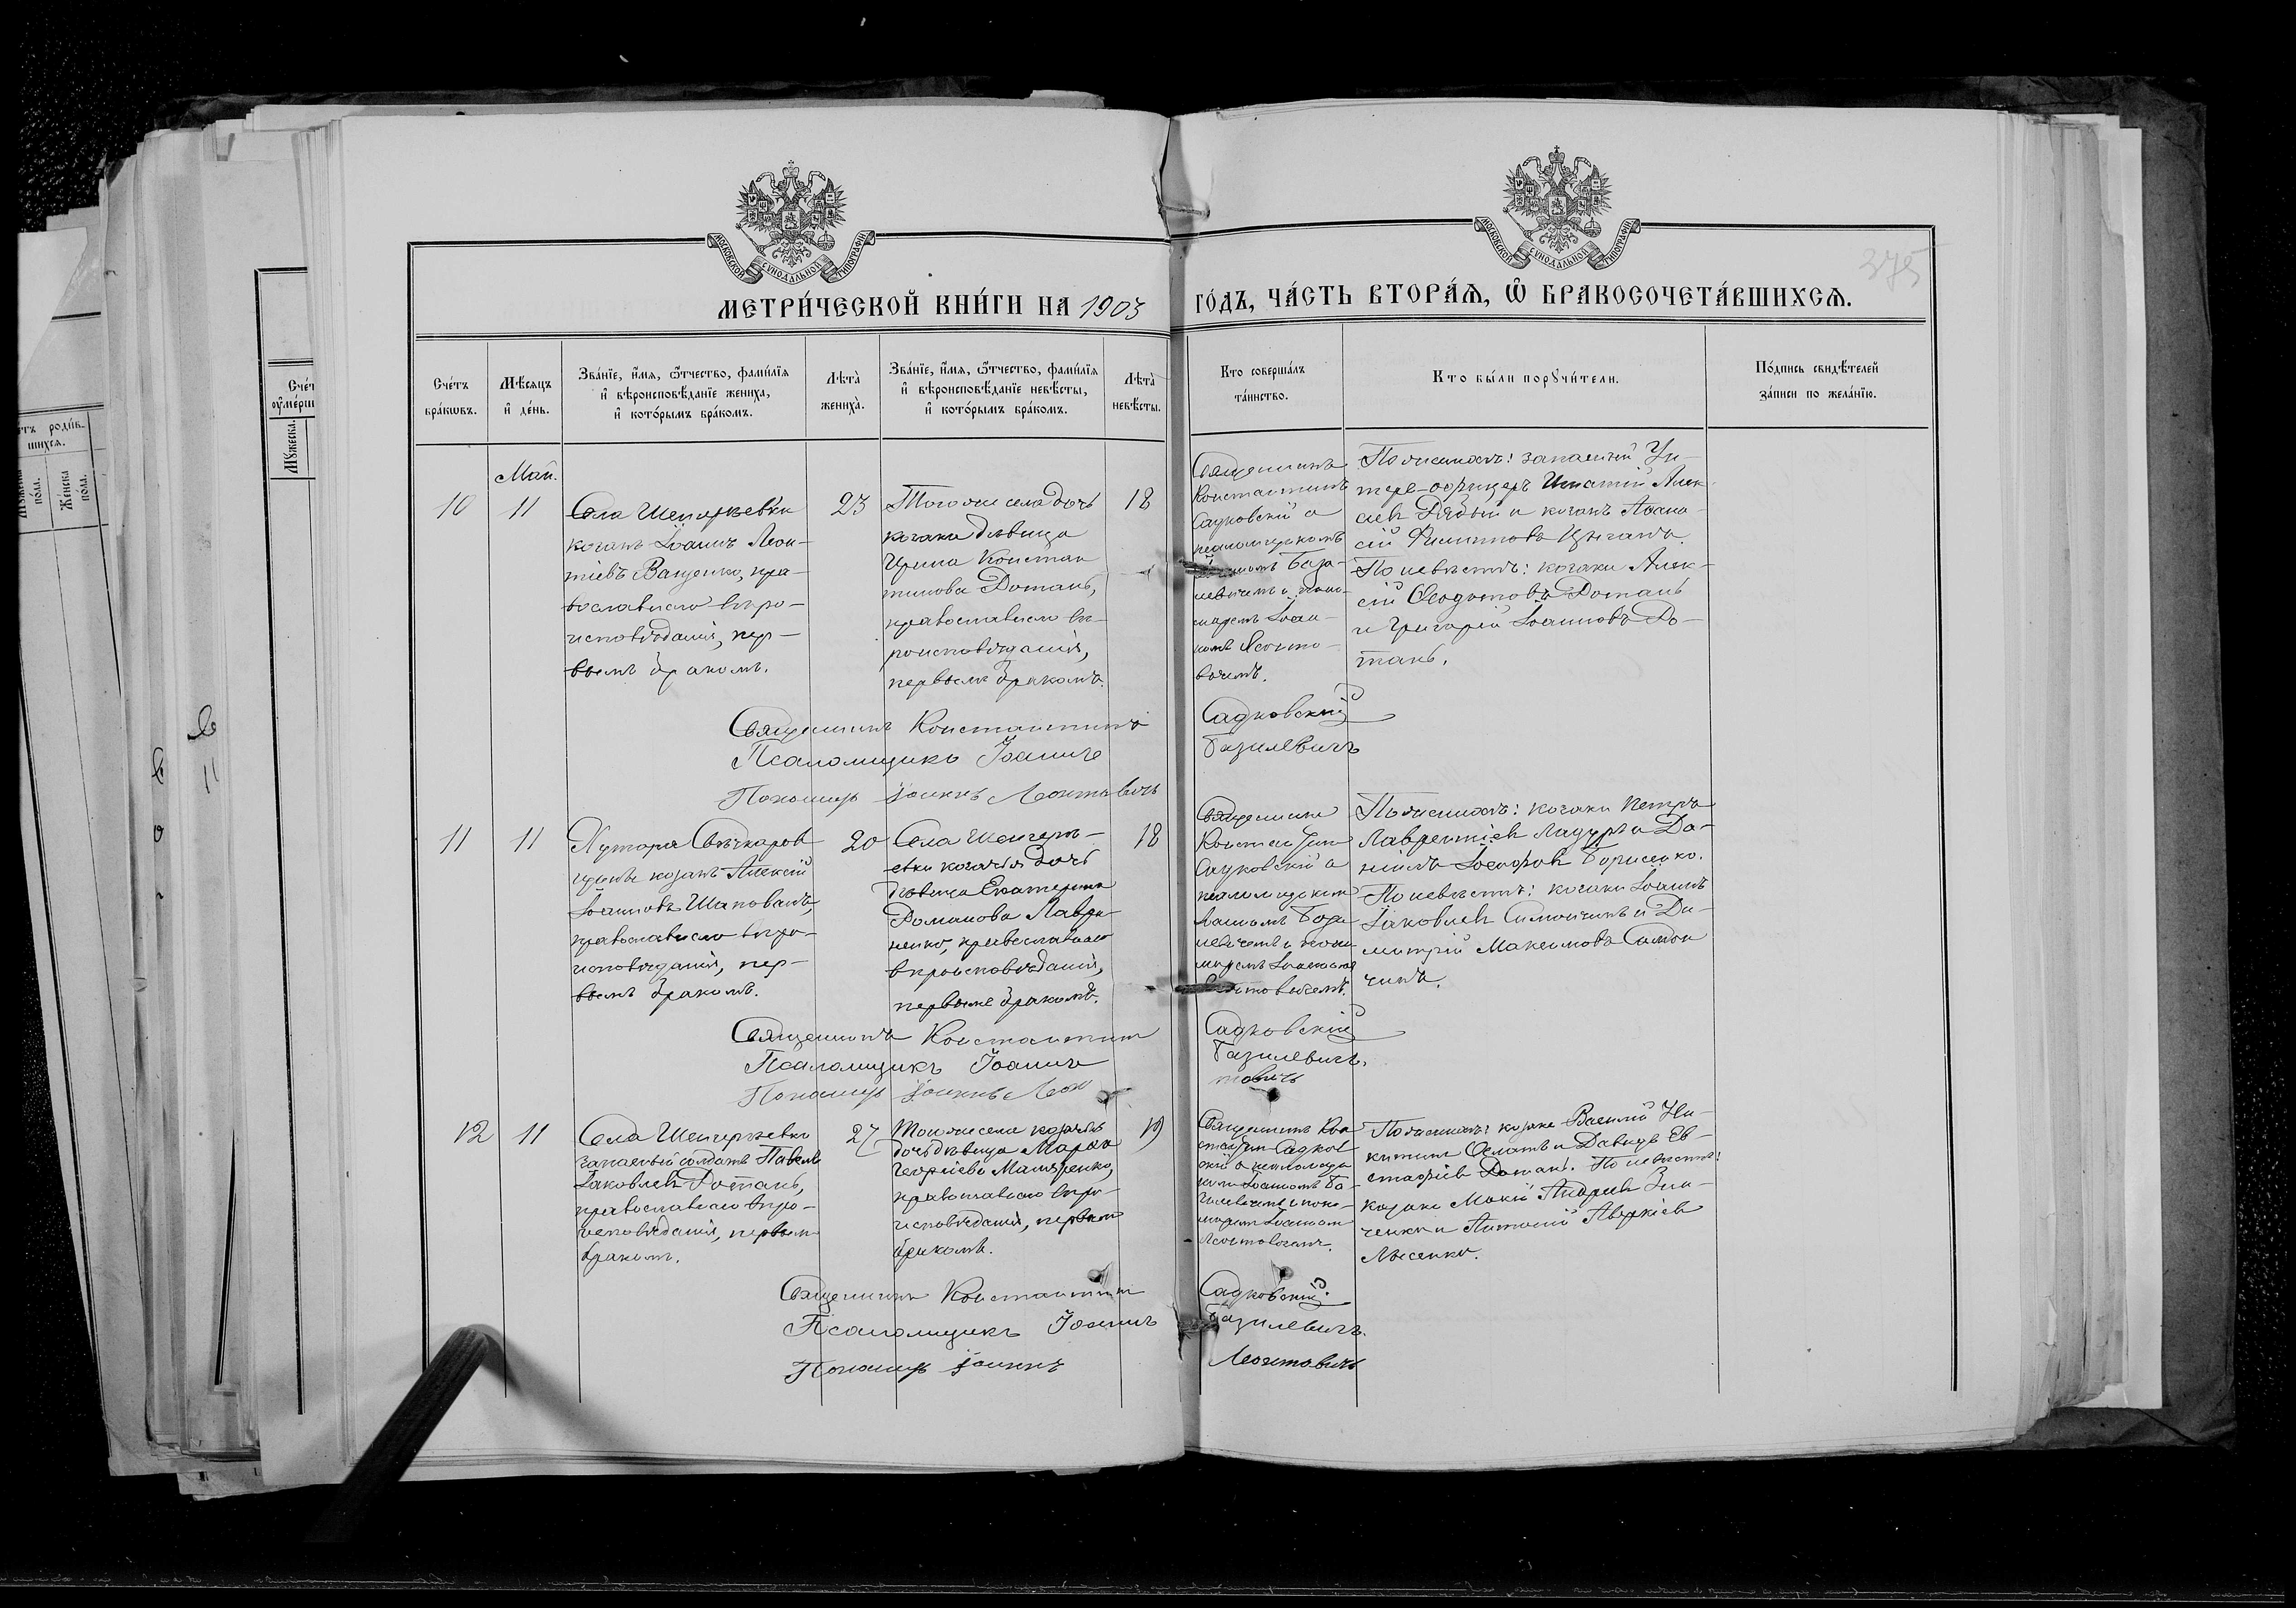 МОСКОВСКОЙ СѴНОДАЛЬНОЙ ТИПОГРАФІИ.
МОСКОВСКОЙ СѴНОДАЛЬНОЙ ТИПОГРАФІИ.
375
МЕТРИ́ЧЕСКОЙ КНИ́ГИ НА 1903 ГО́ДЪ, ЧА́СТЬ ВТОРА́Ѧ, Ѽ БРАКОСОЧЕТА́ВШИХСѦ.
Сче́тъ бра́кѡвъ.
Мѣ́сѧцъ и҆ де́нь.
Зва́нїе, и҆́мѧ, ѻ҆́тчество, фами́лїѧ
и҆ вѣроисповѣ́данїе жениха̀,
и҆ кото́рымъ бра́комъ.
Лѣта̀ жениха̀.
Зва́нїе, и҆́мѧ, ѻ҆́тчество, фами́лїѧ
и҆ вѣроисповѣ́данїе невѣ́сты,
и҆ кото́рымъ бра́комъ.
Лѣта̀ невѣ́сты.
Кто соверша́лъ та́инство.
Кто бы́ли порꙋчи́тели.
По́дпись свидѣ́телей за́писи по жела́нїю.
Май.
10
11
Села
козакъ Іоаннъ Леон-
тіевъ Ващенко, пра-
вославнаго вѣро-
исповѣданія, пер-
вымъ бракомъ.
23
Того же села дочь
козака дѣвица
Ирина Констан
тинова Ротань,
православнаго вѣ-
роисповѣданія,
первымъ бракомъ.
18
Священникъ
Константинъ
Садковскій с
псаломщикомъ
Іоанномъ Бази-
левичемъ и поно-
маремъ Іоан-
номъ Леонто-
вичемъ.
По женихѣ: запасный Ун-
теръ-офицеръ Игнатій Алек-
сіев Рябый и козакъ Афана-
сій Филипповъ Цыганъ.
По невѣстѣ: козаки Алек-
сій Ѳеодотовъ Ротань
и Григорій Іоанновъ Ро-
тань.
Священникъ Константинъ Садковскій
Псаломщикъ Іоаннъ Базилевичъ
Пономарь Іоаннъ Леонтовичъ
11
11
Хутора
козакъ Алексій
Іоанновъ Шаповалъ,
православнаго вѣро-
исповѣданія, пер-
вымъ бракомъ.
20
Села
козачья дочь
дѣвица Екатерина
Романова Лаври-
ненко, православнаго
вѣроисповѣданія,
первымъ бракомъ.
18
Священникъ
Константинъ
Садковскій с
псаломщикомъ
Іоанномъ Бази-
левичемъ и поно-
маремъ Іоанномъ
Леонтовичемъ.
По женихѣ: козаки Петръ
Лаврентіев и Да-
ніилъ Іосифов Борисенко.
По невѣстѣ: козаки Іоаннъ
Іаковлев и Ди-
митрій Максимовъ
Священникъ Константинъ Садковскій
Псаломщикъ Іоаннъ Базилевичъ.
Пономарь Іоаннъ Леонтовичъ
12
11
Села
запасный солдатъ Павелъ
Іаковлев Ротань,
православнаго вѣро-
исповѣданія, первымъ
бракомъ.
27
Того же села козачья
дочь дѣвица
Георгіева Маляренко,
православнаго вѣро-
исповѣданія, первымъ
бракомъ.
19
Священникъ Кон
стантин Садков
скій с псаломщи
комъ Іоанномъ Ба-
зилевичемъ и поно-
маремъ Іоанномъ
Леонтовичемъ.
По женихѣ: козаки Василій Ни-
китинъ и Давидъ Ев-
стафіев Ротань. По невѣстѣ:
козаки Мокій Андреев Зин-
ченко и Антоній Аверкіев
Лысенко.
Священникъ Константинъ Садковскій.
Псаломщикъ Іоаннъ Базилевичъ.
Пономарь Іоаннъ Леонтовичъ